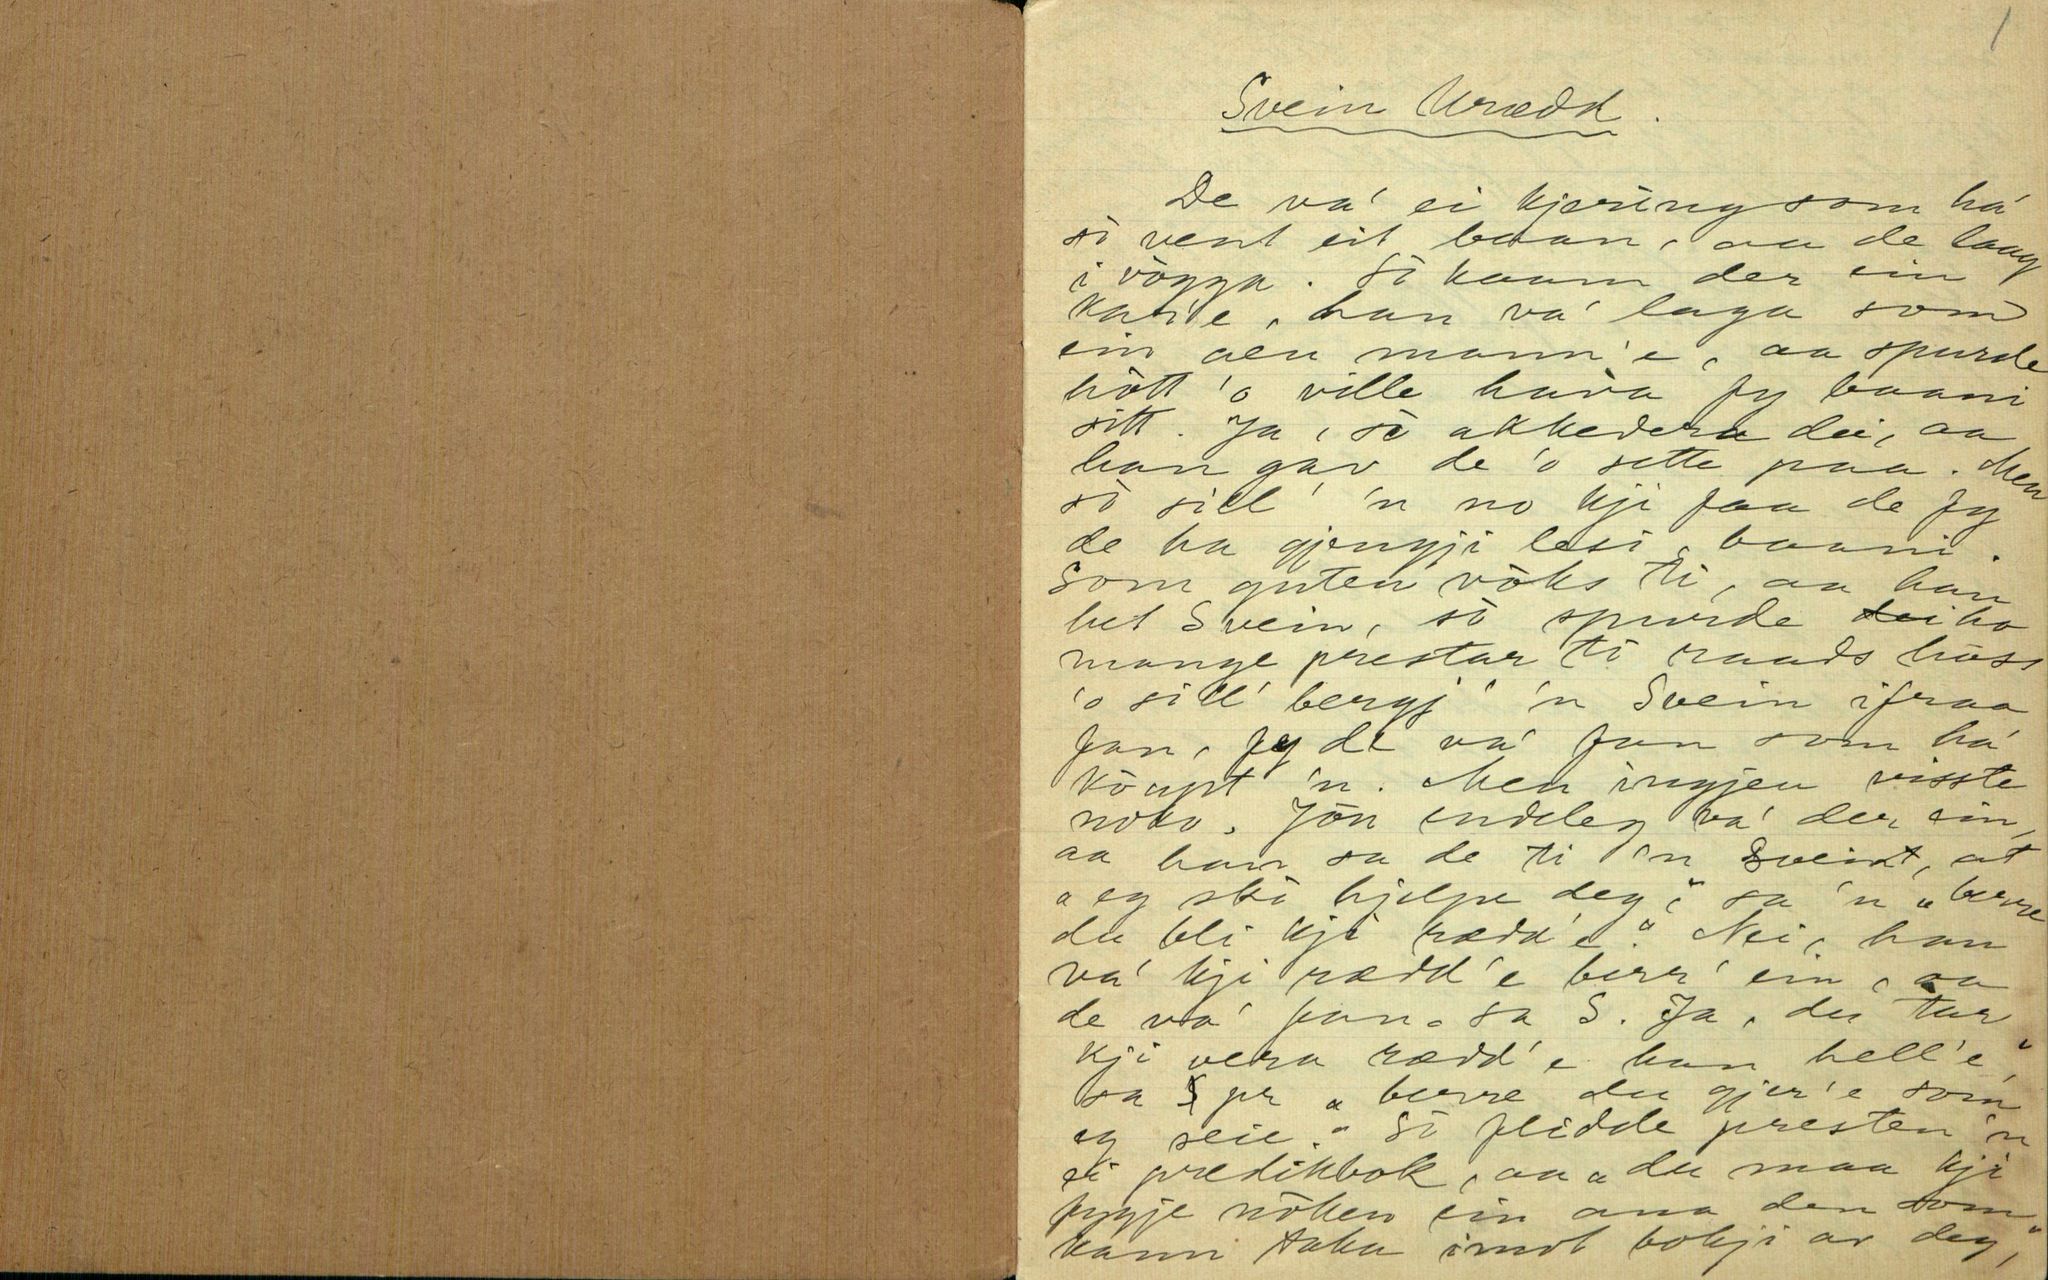 1
Svein Urædd.
De va' ei kjering som há
sò vent eit baan, aa de laag
i vògga. Sò kaam der ein
kar'e, han va' laga som
ein aen mann'e, aa spurde
hòtt 'o ville hava fy baani
sitt. Ja, sò akkedera dei, aa
han gav de 'o sette paa. Men
sò sill' 'n no kji faa de fy
de ha gjengji lesi, baani.
Som guten vòks ti, aa han
het Svein, sò spurde dei ho
mange prestar ti raads hòss
'o sill' bergj' 'n Svein ifraa
fan, fy de va' fan som há'
kòupt 'n. Men ingjen visste
noko. Jòn endeleg va' der ein,
aa han sa de ti 'n Svein, at
"eg skò hjelpe deg," sa 'n "berre
du bli kji rædd'e." Nei, han
va' kji rædd'e berr' ein, aa
de va' fan. sa S. Ja, du tar
kji vera rædd'e han hell'e"
sa pr "berre du gjer'e som
eg seie." Sò flidde presten 'n
ei prædikbok, aa "du maa kji
fygje nòken ein ana den som
kann taka imot bokji av deg,"